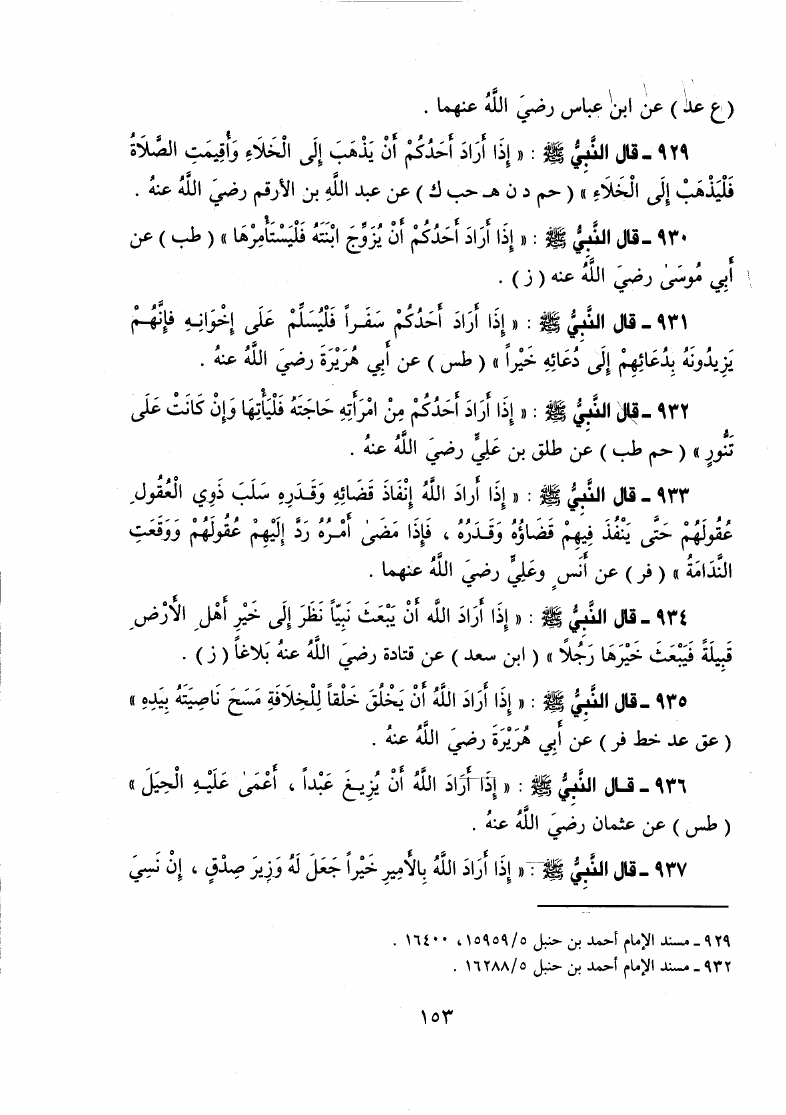 ( ع عد ) عن ابن عباس رضيَ اللَّهُ عنهما .
٩٢٩ - قال النَّبِيُّ ﷺ : « إِذَا أَرَادَ أَحَدُكُمْ أَنْ يَذْهَبَ إِلَى الْخَلَاءِ وَأُقِيمَتِ الصَّلَاةُ
فَلْيَذْهَبْ إِلَى الْخَلَاءِ » ( حم د ن هـ حب ك ) عن عبد اللَّهِ بن الأرقم رضيَ اللَّهُ عنهُ .
٩٣٠ - قال النَّبِيُّ ﷺ : « إِذَا أَرَادَ أَحَدُكُمْ أَنْ يُزَوِّجَ ابْنَتَهُ فَلْيَسْتَأْمِرْهَا » ( طب ) عن
أَبِي مُوسَىٰ رضيَ اللَّهُ عنه ( ز ) .
٩٣١ - قال النَّبِيُّ ﷺ : « إِذَا أَرَادَ أَحَدُكُمْ سَفَراً فَلْيُسَلِّمْ عَلَى إِخْوَانِهِ فَإِنَّهُمْ
يَزِيدُونَهُ بِدُعَائِهِمْ إِلَى دُعَائِهِ خَيْراً » ( طس ) عن أَبِي هُرَيْرَةَ رضيَ اللَّهُ عنهُ .
٩٣٢ - قال النَّبِيُّ ﷺ : « إِذَا أَرَادَ أَحَدُكُمْ مِنْ امْرَأَتِهِ حَاجَتَهُ فَلْيَأْتِهَا وَإِنْ كَانَتْ عَلَى
تَنُّورٍ » ( حم طب ) عن طلق بن عَلِيٍّ رضيَ اللَّهُ عنهُ .
٩٣٣ - قال النَّبِيُّ ﷺ : « إِذَا أَرَادَ اللَّهُ إِنْفَاذَ قَضَائِهِ وَقَدَرِهِ سَلَبَ ذَوِي الْعُقُولِ
عُقُولَهُمْ حَتَّى يَنْفُذَ فِيهِمْ قَضَاؤُهُ وَقَدَرُهُ ، فَإِذَا مَضَىٰ أَمْرُهُ رَدَّ إِلَيْهِمْ عُقُولَهُمْ وَوَقَعَتِ
النَّدَامَةُ » ( فر ) عن أَنَسٍ وعَلِيٍّ رضيَ اللَّهُ عنهما .
٩٣٤ - قال النَّبِيُّ ﷺ : « إِذَا أَرَادَ اللَّه أَنْ يَبْعَثَ نَبِيّاً نَظَرَ إِلَى خَيْرِ أَهْلِ الأَرْضِ
قَبِيلَةً فَيَبْعَثُ خَيْرَهَا رَجُلاً » ( ابن سعد ) عن قتادة رضيَ اللَّهُ عنهُ بَلَاغاً ( ز ) .
٩٣٥ - قال النَّبِيُّ ﷺ : « إِذَا أَرَادَ اللَّهُ أَنْ يَخْلُقَ خَلْقاً لِلْخِلَافَةِ مَسَحَ نَاصِيَتَهُ بِيَدِهِ »
( عق عد خط فر ) عن أَبِي هُرَيْرَةَ رضيَ اللَّهُ عنهُ .
٩٣٦ - قال النَّبِيُّ ﷺ : « إِذَا أَرَادَ اللَّهُ أَنْ يُزِيغَ عَبْداً ، أَعْمَىٰ عَلَيْهِ الْحِيَلَ »
( طس ) عن عثمان رضيَ اللَّهُ عنهُ .
٩٣٧ - قال النَّبِيُّ ﷺ : « إِذَا أَرَادَ اللَّهُ بِالأَمِيرِ خَيْراً جَعَلَ لَهُ وَزِيرَ صِدْقٍ ، إِنْ نَسِيَ
٩٢٩ - مسند الإمام أحمد بن حنبل ١٥٩٥٩/٥ ، ١٦٤٠٠ .
٩٣٢ - مسند الإمام أحمد بن حنبل ١٦٢٨٨/٥ .
١٥٣